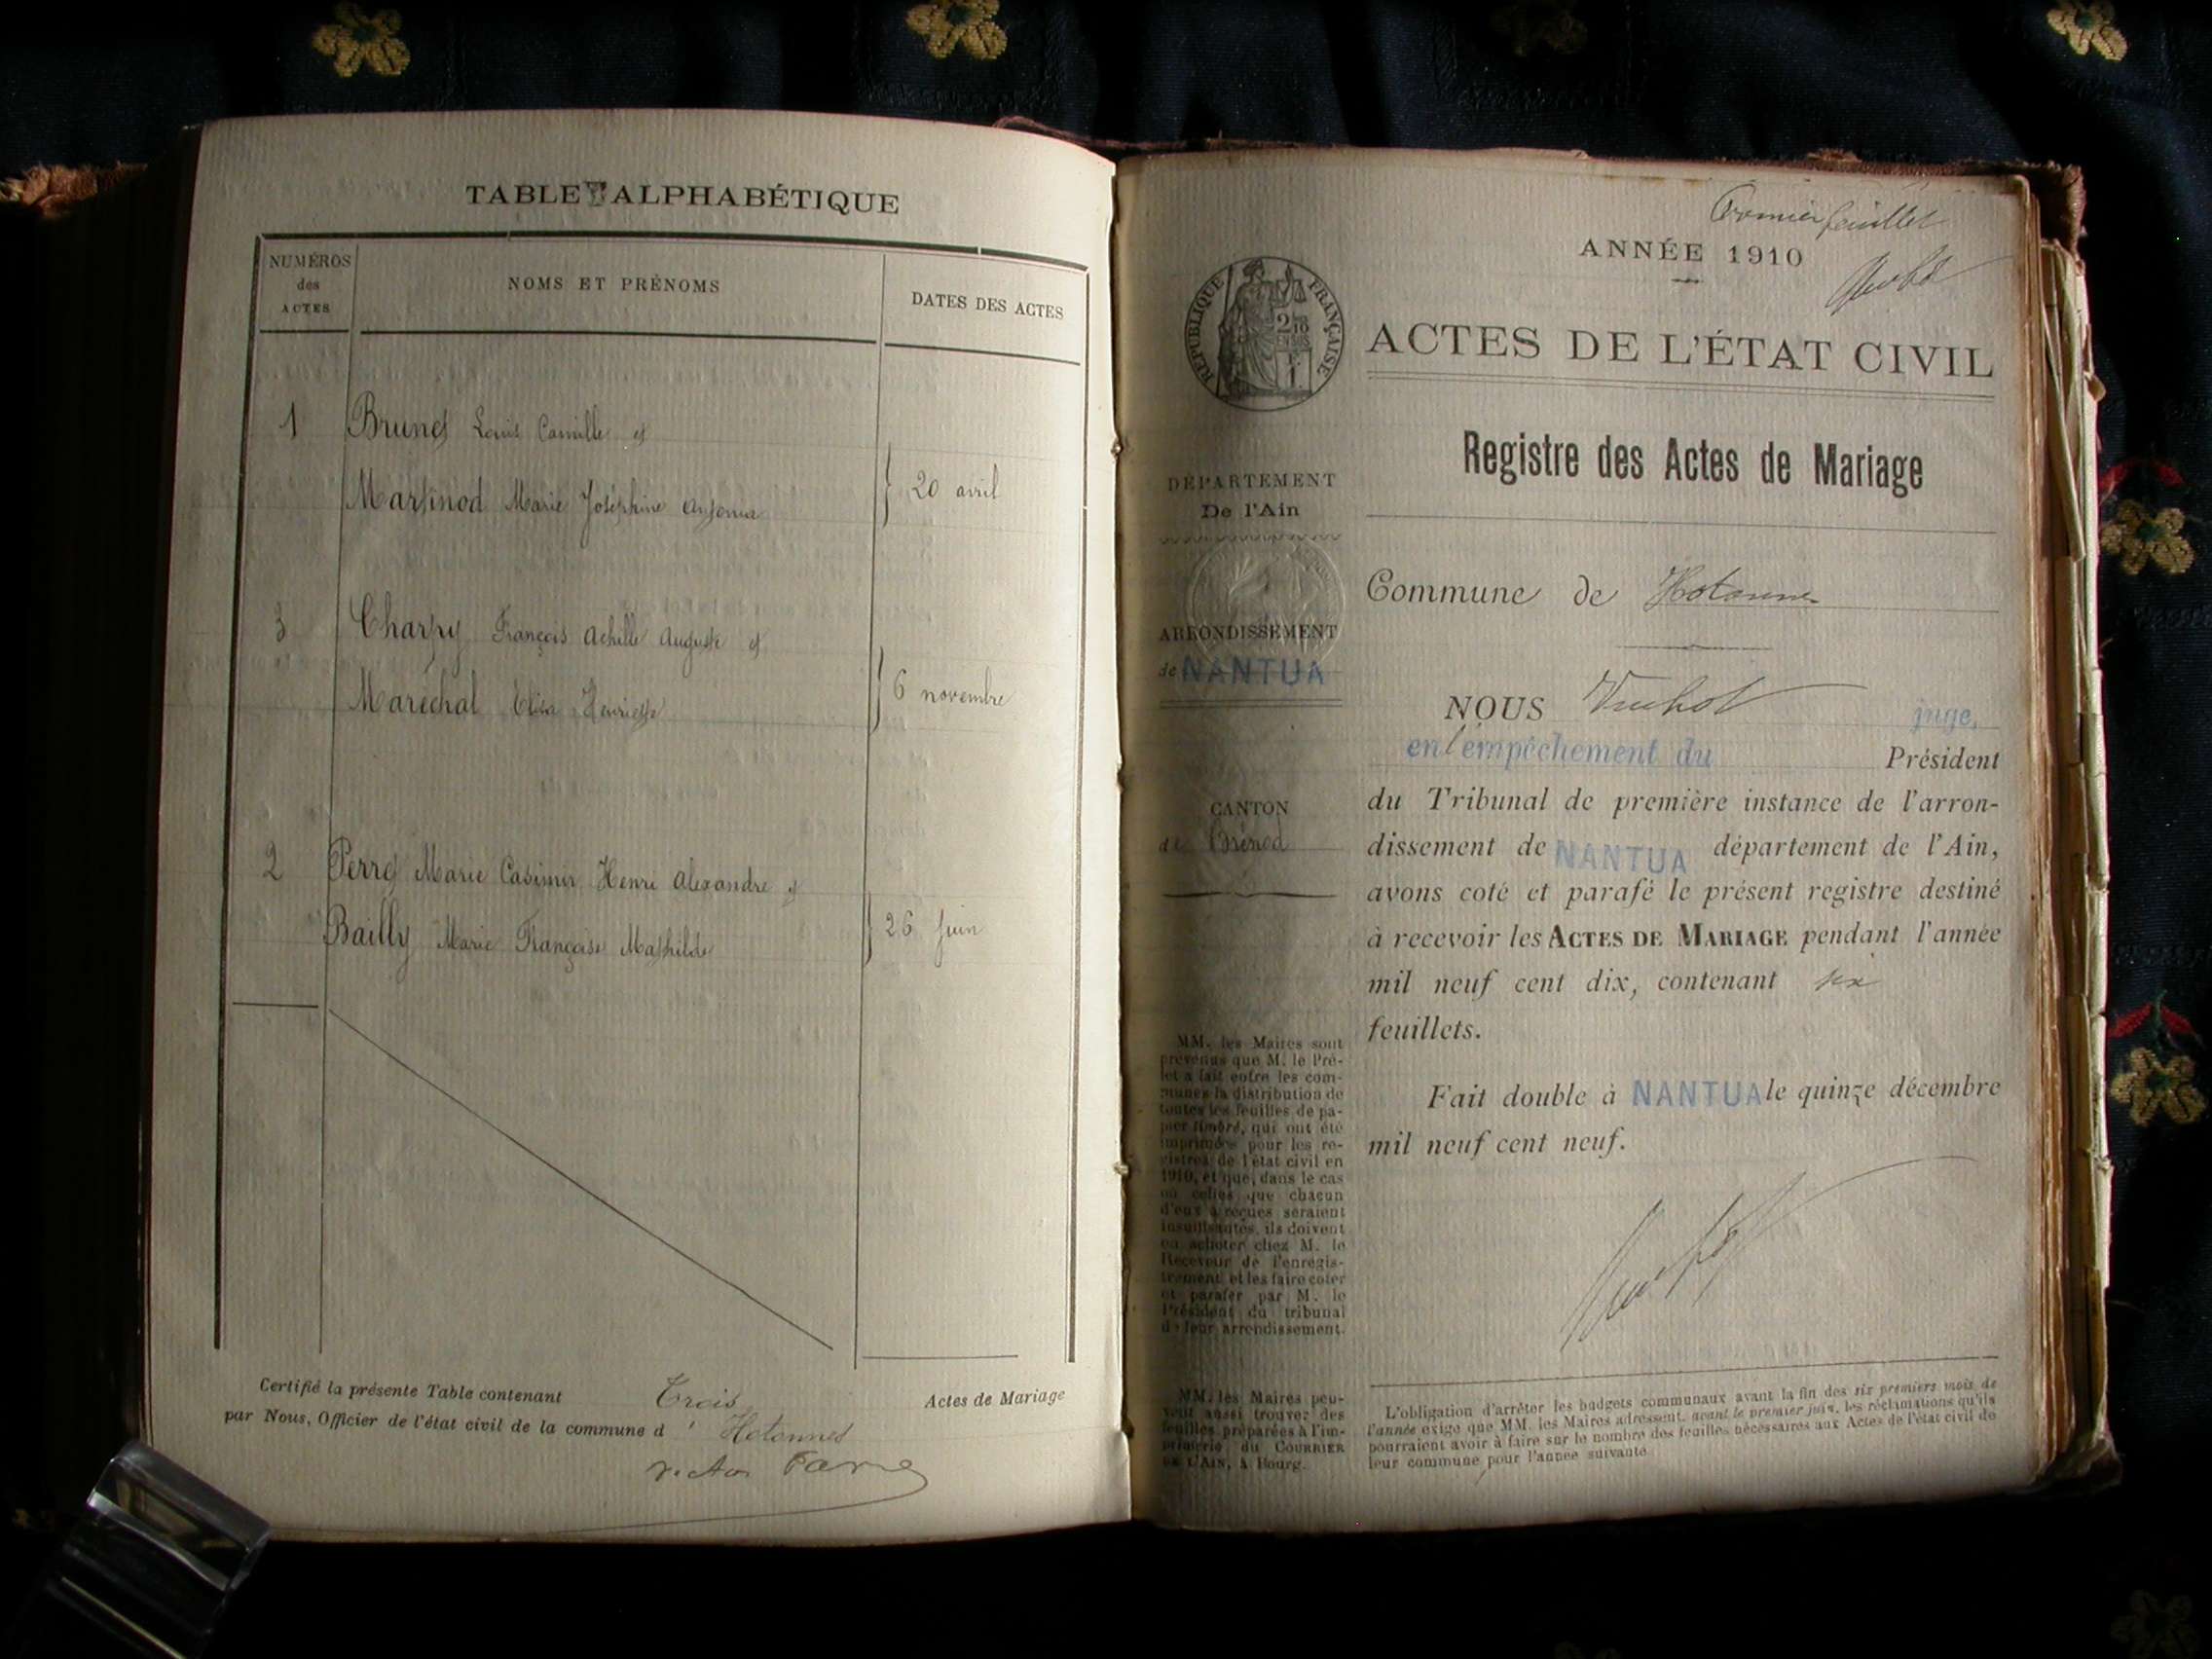 TABLE ALPHABÉTIQUE
NUMÉROS
des
ACTES
NOMS ET PRÉNOMS
DATES DES ACTES
1 Brunet Louis Camille et
Martinod Marie Joséphine Antonia
20 avril
3 Charpy François Achille Auguste et
Maréchal Elisa Henriette
6 novembre
2 Perret Marie Casimir Henri Alexandre et
Bailly Marie Françoise Mathilde
26 Juin
Certifié la présente Table contenant Trois Actes de Mariage
par Nous, Officier de l'état civil de la commune d' Hotonnes
Victor Favre
Premier feuillet
ANNÉE 1910
RÉPUBLIQUE FRANÇAISE
ACTES DE L'ÉTAT CIVIL
Registre des Actes de Mariage
DÉPARTEMENT
De l'Ain
ARRONDISSEMENT
de NANTUA
CANTON
de Brénod
MM. les Maires sont
prévenus que M. le Pré-
fet a fait entre les com-
munes la distribution de
toutes les feuilles de pa-
pier timbré, qui ont été
imprimées pour les re-
gistres de l'état civil en
1910, et que, dans le cas
où celles que chacun
d'eux a reçues seraient
insuffisantes, ils doivent
en acheter chez M. le
Receveur de l'enregis-
trement et les faire coter
et parafer par M. le
Président du tribunal
de leur arrondissement.
MM. les Maires peu-
vent aussi trouver des
feuilles préparées à l'im-
primerie du COURRIER
DE L'AIN, à Bourg.
Commune de Hotonnes
NOUS juge,
en l'empêchement du Président
du Tribunal de première instance de l'arron-
dissement de NANTUA département de l'Ain,
avons coté et parafé le présent registre destiné
à recevoir les ACTES DE MARIAGE pendant l'année
mil neuf cent dix, contenant six
feuillets.
Fait double à NANTUA le quinze décembre
mil neuf cent neuf.
L'obligation d'arrêter les budgets communaux avant la fin des six premiers mois de
l'année exige que MM. les Maires adressent, avant le premier juin, les réclamations qu'ils
pourraient avoir à faire sur le nombre des feuilles nécessaires aux Actes de l'état civil de
leur commune pour l'année suivante.